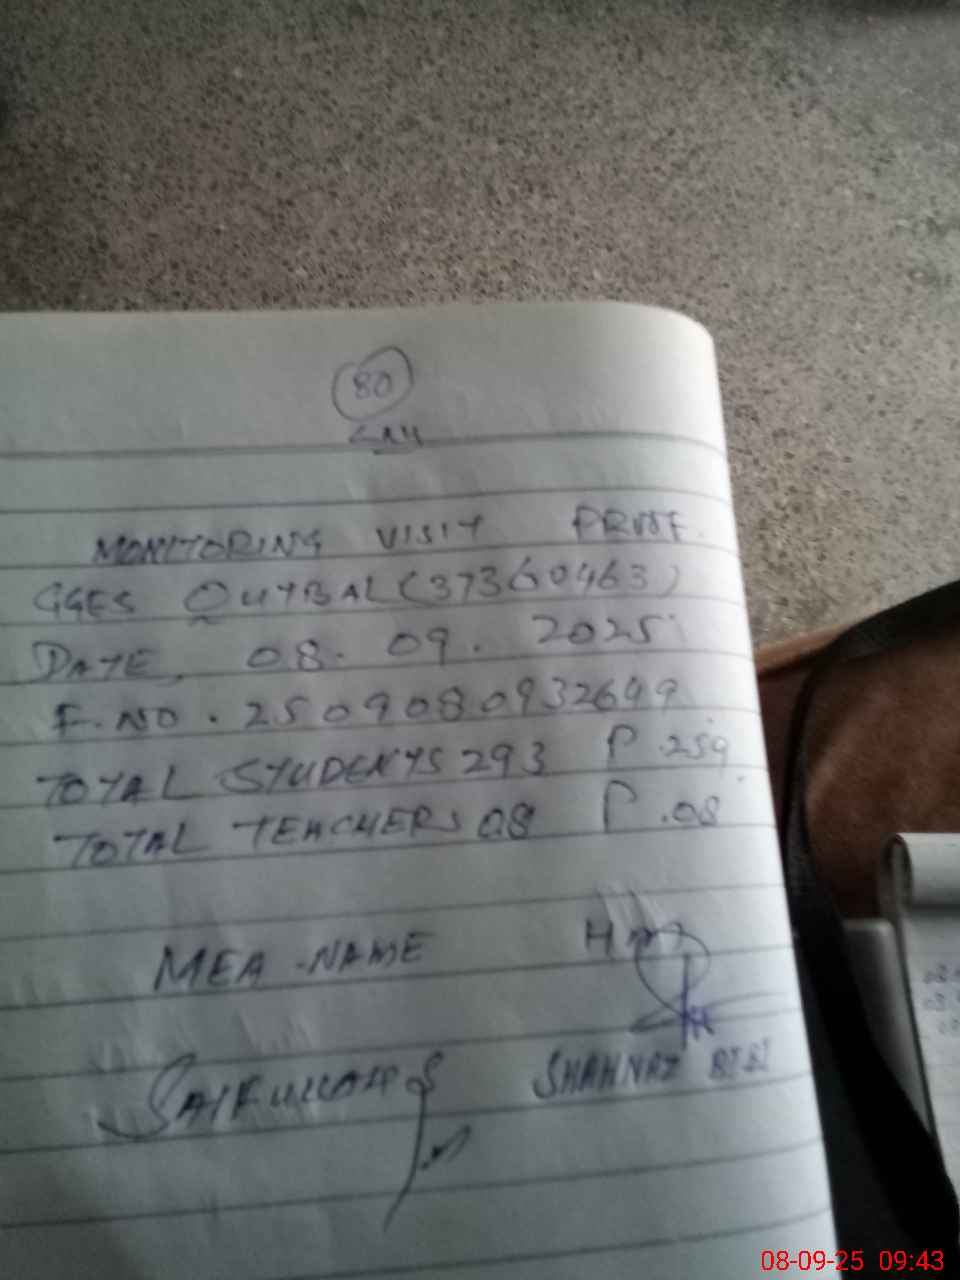 80
MONITORING VISIT PROOF.
GGES QUTBAL (37360463)
DATE. 08. 09. 2025
F.NO. 2509080932649
TOTAL STUDENTS 293 P. 259
TOTAL TEACHERS 08 P. 08
MEA NAME H
SAIFULLAH SHAHNAZ BIBI
08-09-25 09:43